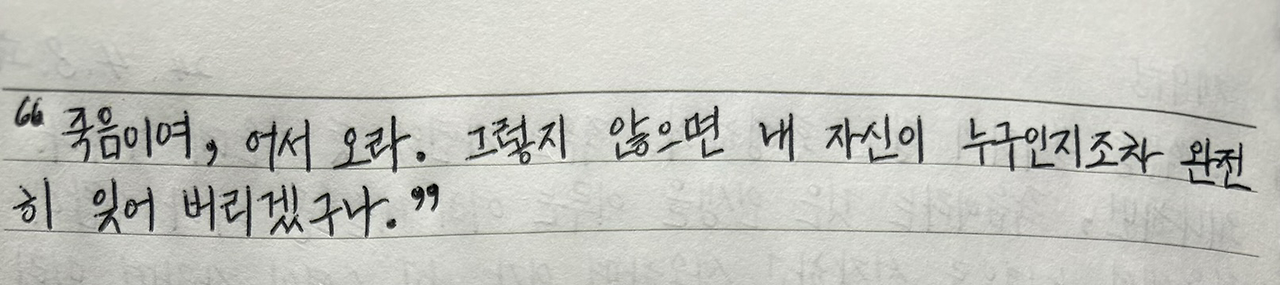 “죽음이여, 어서 오라. 그렇지 않으면 내 자신이 누구인지조차 완전
히 잊어 버리겠구나.”